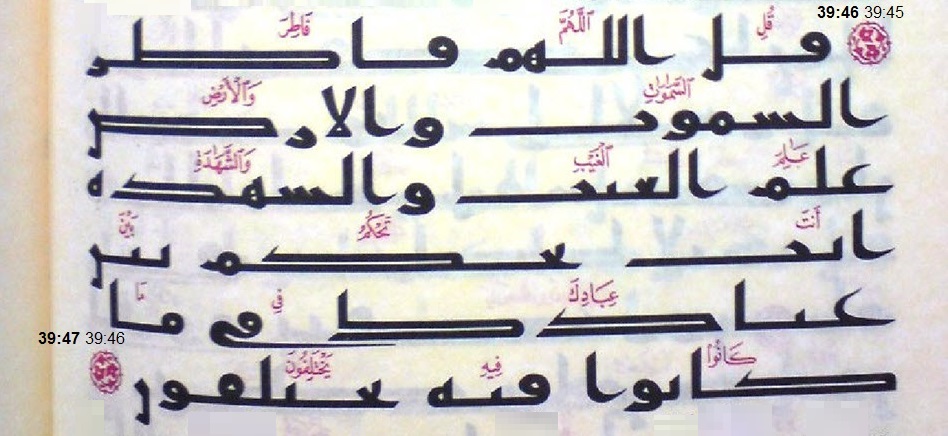 39:46 39:45
قُلِ ٱللَّهُمَّ فَاطِرَ
قل اللهم فاطر
ٱلسَّمَٰوَٰتِ وَٱلْأَرْضِ
السموت والارض
عَٰلِمَ ٱلْغَيْبِ وَٱلشَّهَٰدَةِ
علم الغيب والشهده
أَنتَ تَحْكُمُ بَيْنَ
انت تحكم بين
عِبَادِكَ فِي مَا
عبادك في ما
39:47 39:46
كَانُوا۟ فِيهِ يَخْتَلِفُونَ
كانوا فيه يختلفون